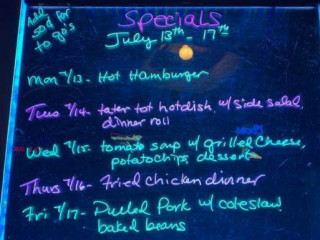 Add
50¢ for
to go's
Specials
July 13th - 17th
Mon 7/13 - Hot Hamburger
Tues 7/14 - tater tot hotdish, w/ side salad,
dinner roll
Wed 7/15 - tomato soup w/ grilled cheese,
potato chips, dessert
Thurs 7/16 - Fried chicken dinner
Fri 7/17 - Pulled Pork w/ coleslaw
baked beans